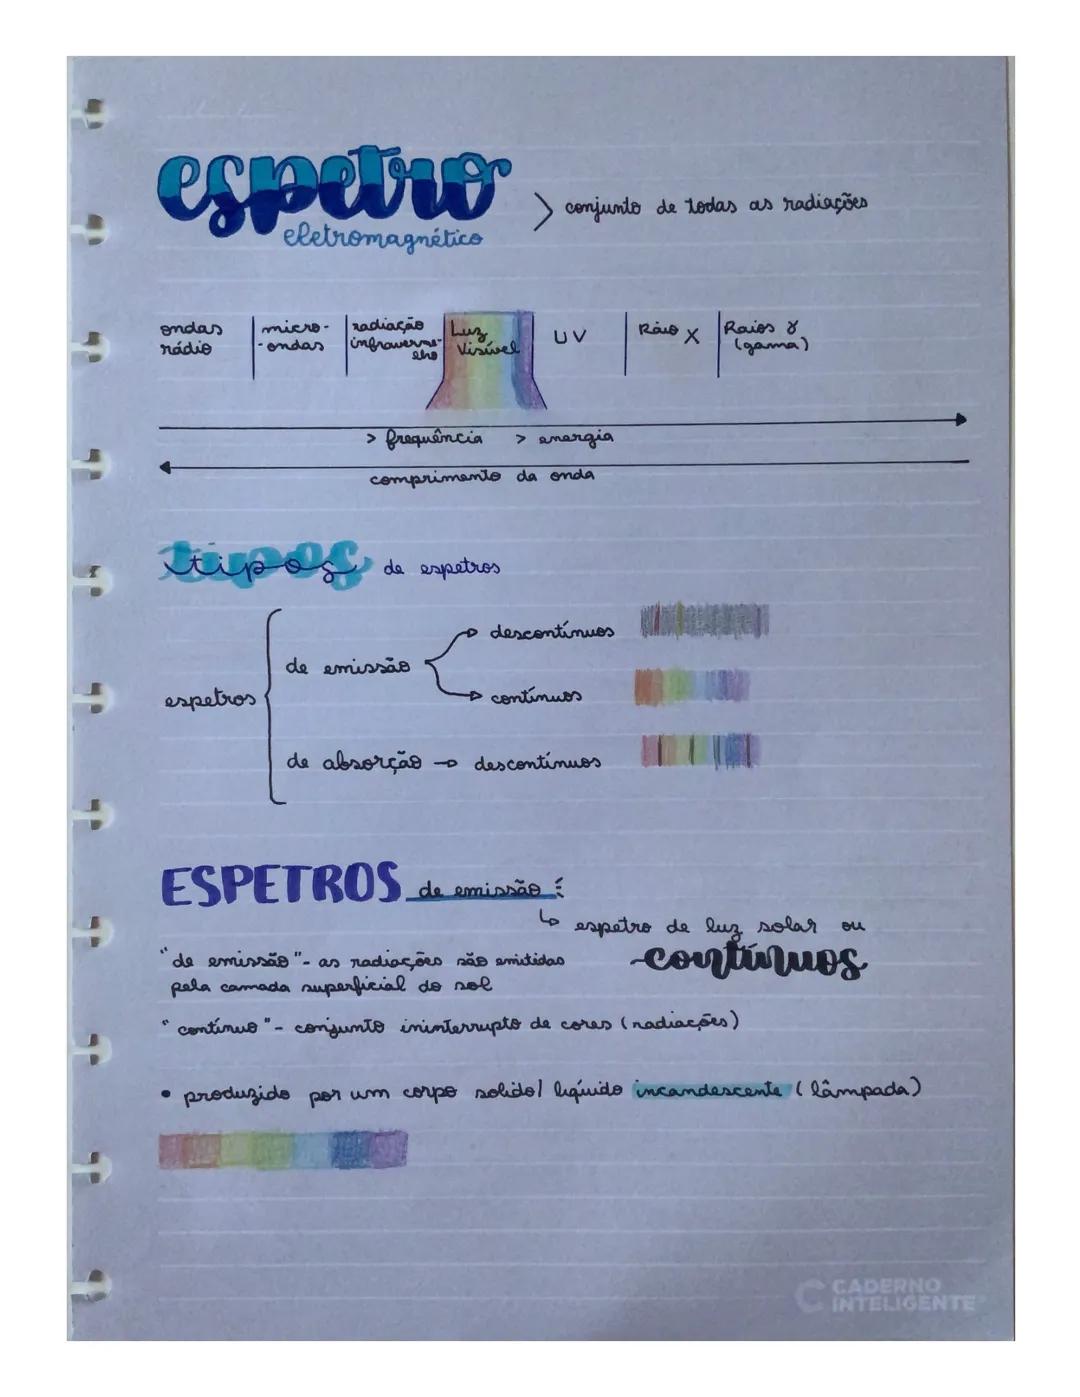 espetro
eletromagnético
> conjunto de todas as radiações
ondas rádio
micro-
-ondas
radiação
infraverme-
lho
Luz
Visível
UV
Raio X
Raios γ
(gama)
> frequência > energia
comprimento da onda
tipos de espetros
espetros
de emissão
descontínuos
contínuos
de absorção → descontínuos
ESPETROS de emissão :
↳ espetro de luz solar ou
contínuos
"de emissão" - as radiações são emitidas
pela camada superficial do sol
"contínuo" - conjunto ininterrupto de cores (radiações)
• produzido por um corpo solido/ líquido incandescente (lâmpada)
CADERNO
INTELIGENTE